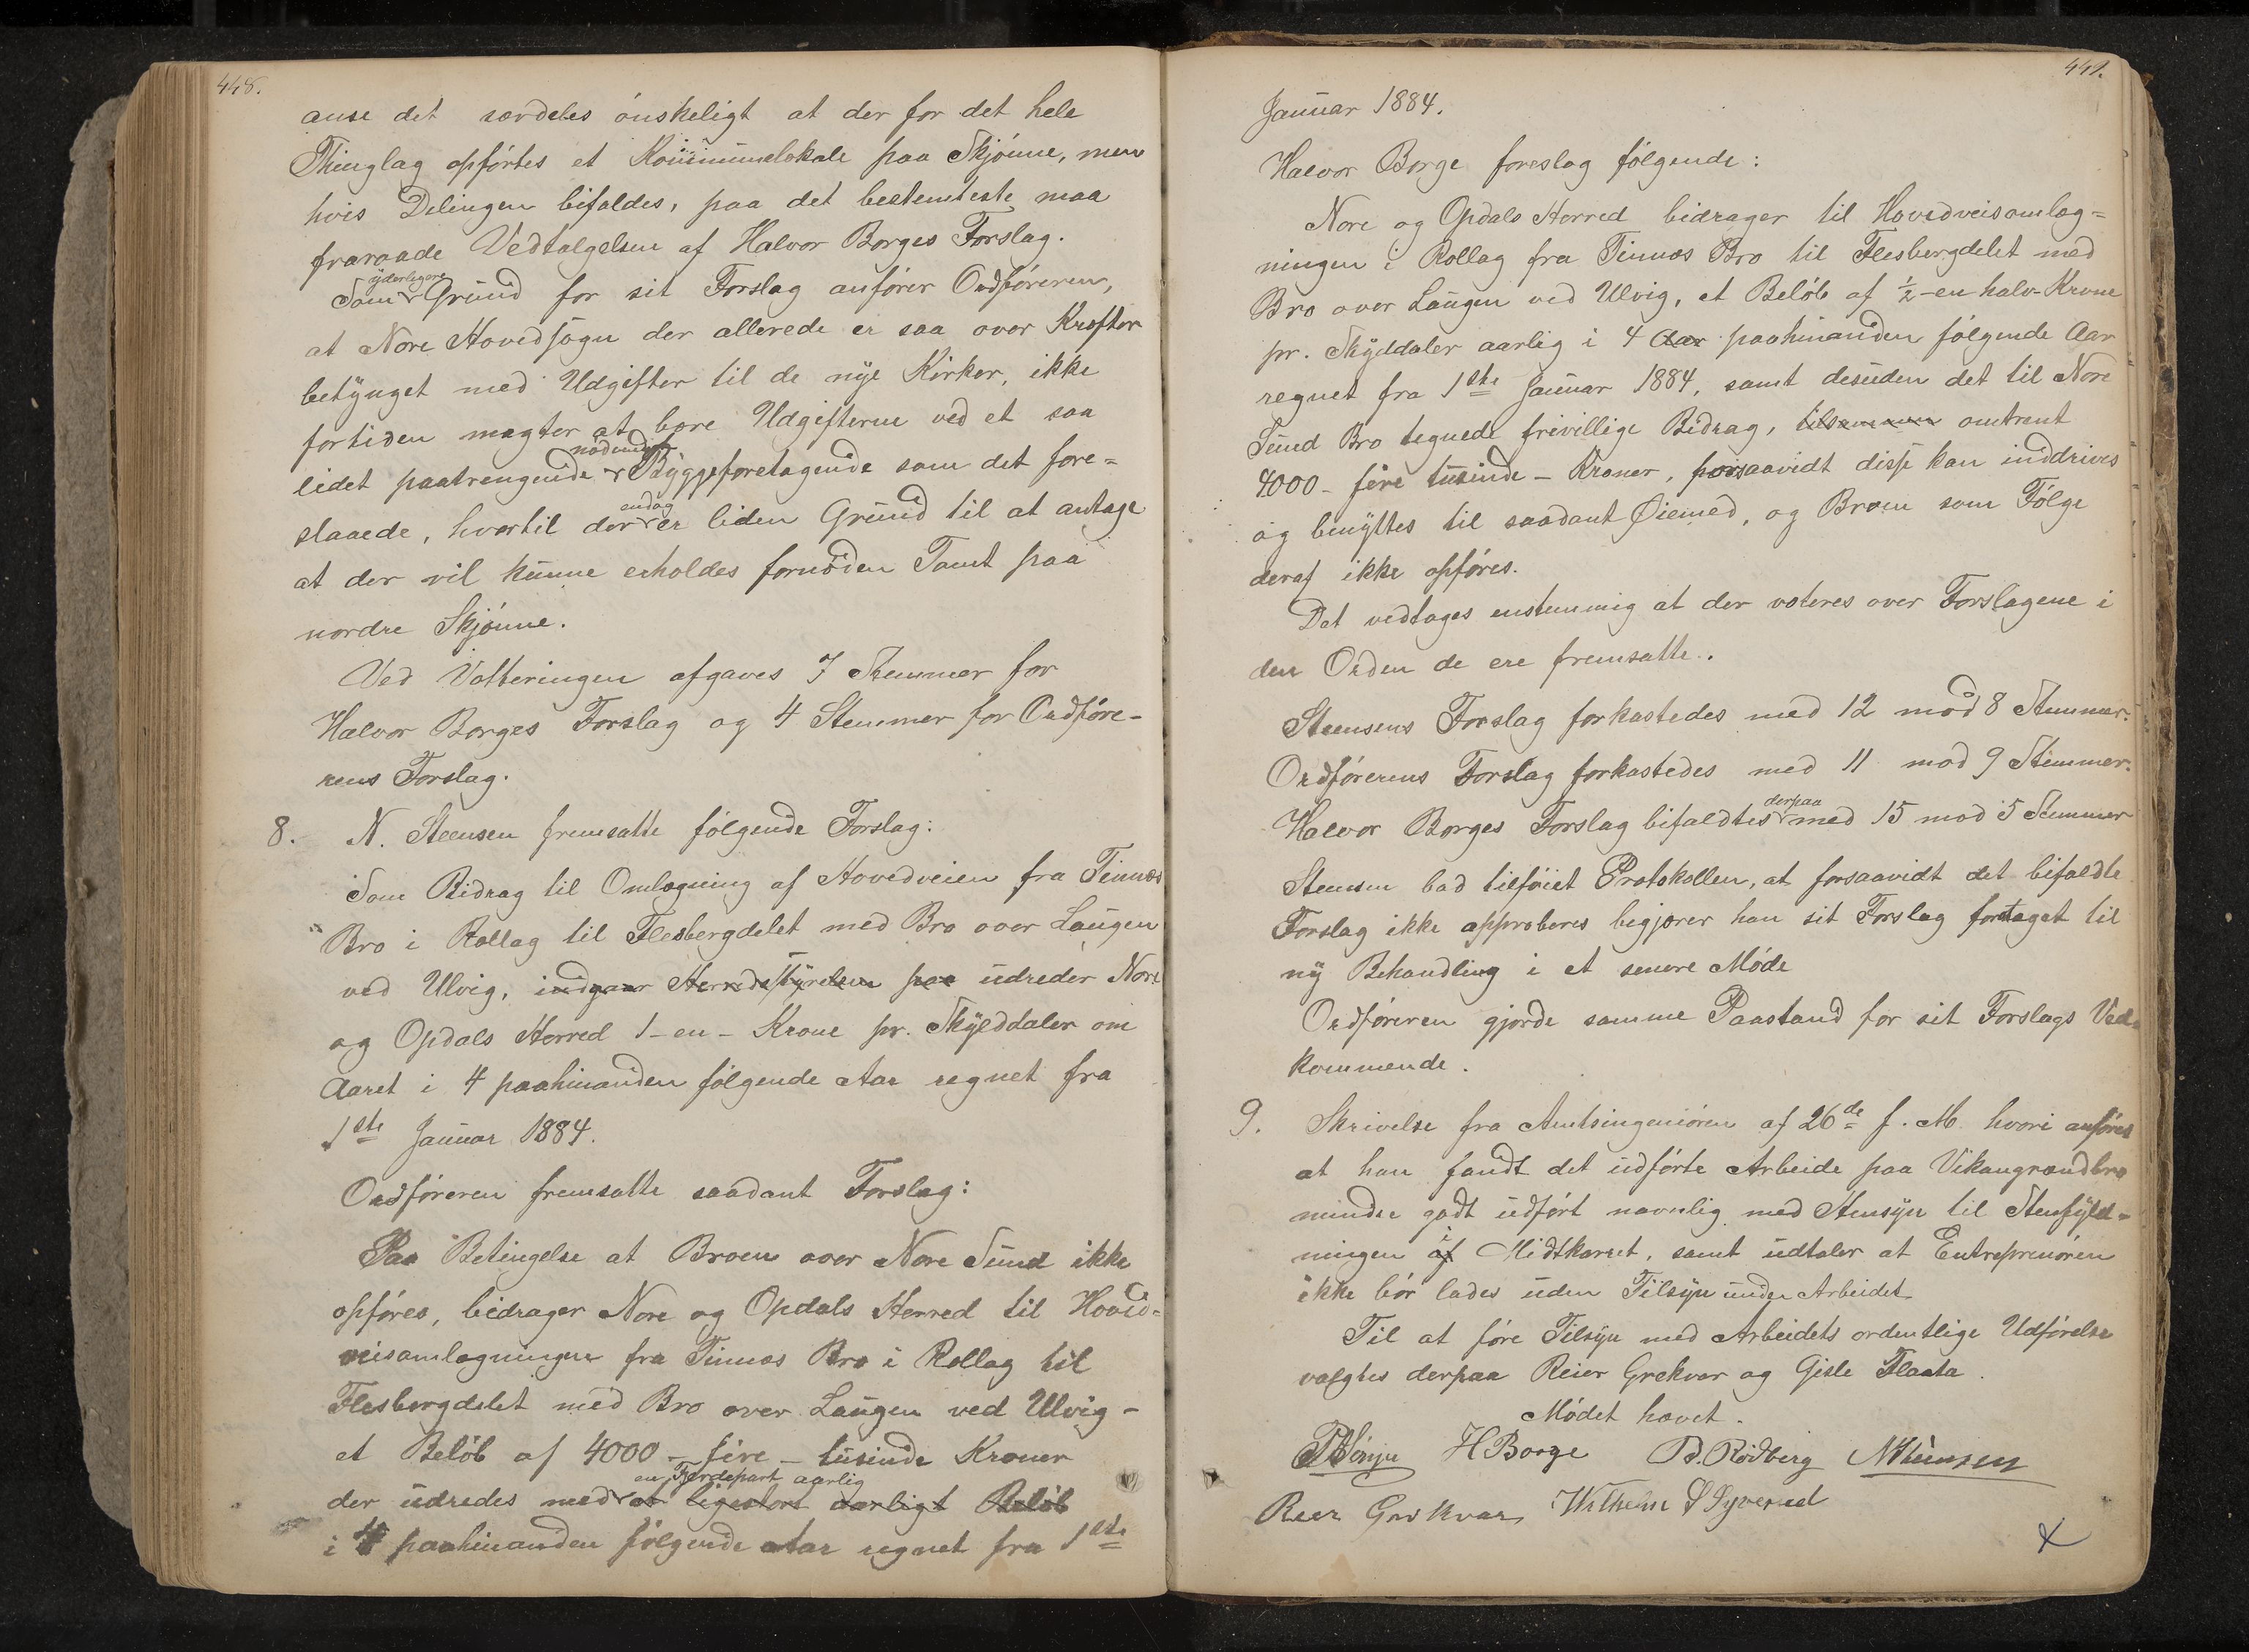 448.
anse det særdeles ønskeligt at der for det hele
Thinglag opførtes et Kommunelokale paa Skjønne, men
hvis Delingen bifaldes, paa det bestemteste maa
fraraade Vedtagelsen af Halvor Borges Forslag.
yderligere
Som Grund for sit Forslag anfører Ordføreren,
at Nore Hovedsogn der allerede er saa over Kræfter
betynget med Udgifter til de nye Kirker, ikke
fortiden magter at bære Udgifterne ved et saa
nødvendigt
lidet paatrengende Byggeforetagende som det fore-
endog
slaaede, hvortil der er liden Grund til at antage
at der vil kunne erholdes fornøden Tomt paa
nordre Skjønne.
Ved Votteringen afgaves 7 Stemmer for
Halvor Borges Forslag og 4 Stemmer for Ordføre-
rens Forslag.
8. N. Steensen fremsatte følgende Forslag:
Som Bidrag til Omlægning af Hovedveien fra Tinnæs
Bro i Rollag til Flesbergdelet med Bro over Laugen
ved Ulvig, indgaar Herredsstyrelsen paa udreder Nore
og Opdals Herred 1-en- Krone pr. Skylddaler om
Aaret i 4 paahinanden følgende Aar regnet fra
1ste Januar 1884.
Ordføreren fremsatte saadant Forslag:
Paa Betingelse at Broen over Nore Sund ikke
opføres, bidrager Nore og Opdals Herred til Hoved-
veisomlægningen fra Tinnæs Bro i Rollag til
Flesbergdelet med Bro over Laugen ved Ulvig -
et Beløb af 4000 - fire - tusinde Kroner
en Fjerdepart aarlig
der udredes med et ligestort aarligt Beløb
i 4 paahinanden følgende Aar regnet fra 1ste
449.
Januar 1884.
Halvor Borge foreslog følgende:
Nore og Opdals Herred bidrager til Hovedveisomlæg-
ningen i Rollag fra Tinnæs Bro til Flesbergdelet med
Bro over Laugen ved Ulvig, et Beløb af ½-en halv-Krone
pr. Skylddaler aarlig i 4 Aar paahinanden følgende Aar
regnet fra 1ste Januar 1884, samt desuden det til Nore
Sund Bro tegnede frivillige Bidrag, tilsammen omtrent
4000 - fire tusinde - Kroner, forsaavidt disse kan inddrives
og benyttes til saadant Øiemed, og Broen som Følge
deraf ikke opføres.
Det vedtages enstemmig at der voteres over Forslagene i
den Orden de ere fremsatte.
Steensens Forslag forkastedes med 12 mod 8 Stemmer.
Ordførerens Forslag forkastedes med 11 mod 9 Stemmer.
derpaa
Halvor Borges Forslag bifaldtes med 15 mod 5 Stemmer
Steensen bad tilføiet Protokollen, at forsaavidt det bifaldte
Forslag ikke approberes begjærer han sit Forslag foretaget til
ny Behandling i et senere Møde
Ordføreren gjorde samme Paastand for sit Forslags Ved-
kommende.
9. Skrivelse fra Amtsingeniøren af 26de f. M. hvori anføres
at han fandt det udførte Arbeide paa Vikangrændbro
mindre godt udført navnlig med Hensyn til Stenfyld-
i
ningen af Midtkarret, samt udtaler at Entreprenøren
ikke bør lades uden Tilsyn under Arbeidet
Til at føre Tilsyn med Arbeidets ordentlige Udførelse
valgtes derpaa Reier Grøkvar og Gisle Flaata.
Mødet hævet.
H Borge B. Rødberg NSteensen
Reer Grøkvar Wilhelm S Syverud
x